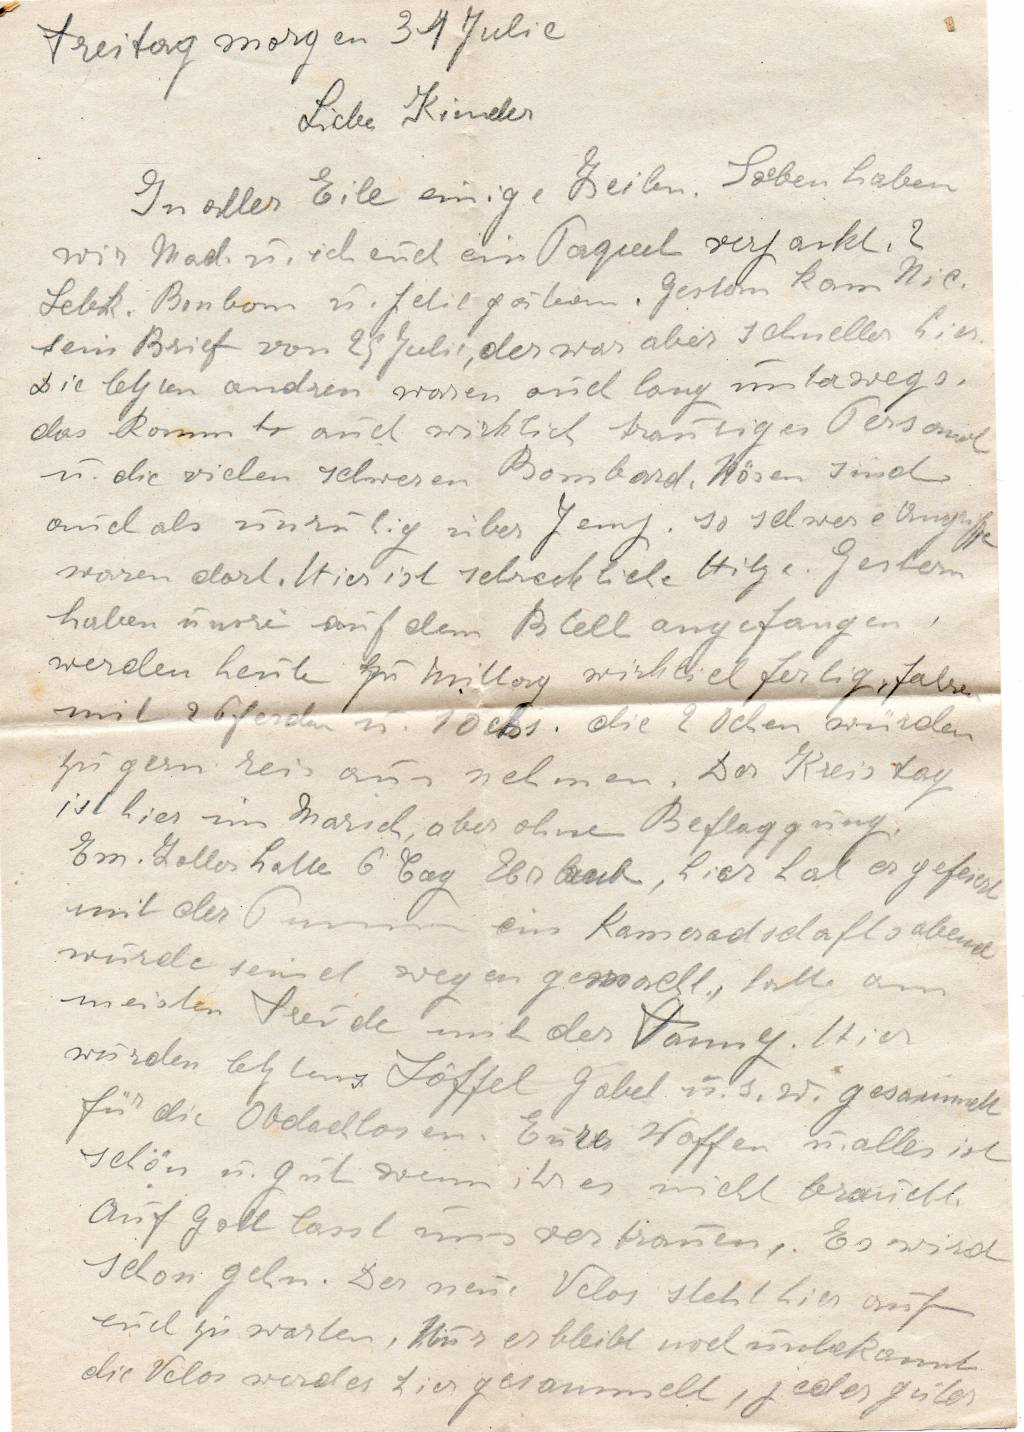 Freitag morgen 31 Julie
Liebe Kinder
In aller Eile einige Zeilen. Soeben haben
wir Mad. u. ich euch ein Paquet verpackt. 2
Lebk. Bonbon u. . Gestern kam Nic.
sein Brief von 25 Julie, der war aber schneller hier.
Die letzen andren waren auch lang unterwegs.
das kommt auch wirklich trauriges Personal
u. die vielen schweren Bombard. Hören sind
auch als unruhig über . so schwere Angriffe
waren dort. Hier ist schreckliche Hitze. Gestern
haben unsre auf dem angefangen,
werden heute zu Mittag wirklich fertig, fahren
mit 2 Pferden u. 1 Ochs. die 2 Ochen würden
zu gern reis aus nehmen. Der Kreistag
ist hier im Marsch, aber ohne Beflaggung.
Em. Zoller hatte 6 Tag Urlaub, hier hat er gefeiert
mit der ein Kameradschaftsabend
wurde seinet wegen gemacht, hatte am
meisten Freude mit der Fanny. Hier
wurden letztens Löffel Gabel u. s. w. gesammelt
für die Obdachlosen. Eure Waffen u. alles ist
schön u. gut wenn ihr es nicht braucht.
Auf Gott lasst uns vertrauen, Es wird
schon gehn. Der neue Velos steht hier auf
euch zu warten, Nur er bleibt noch unbekannt
die Velos werden hier gesammelt, jeder guter